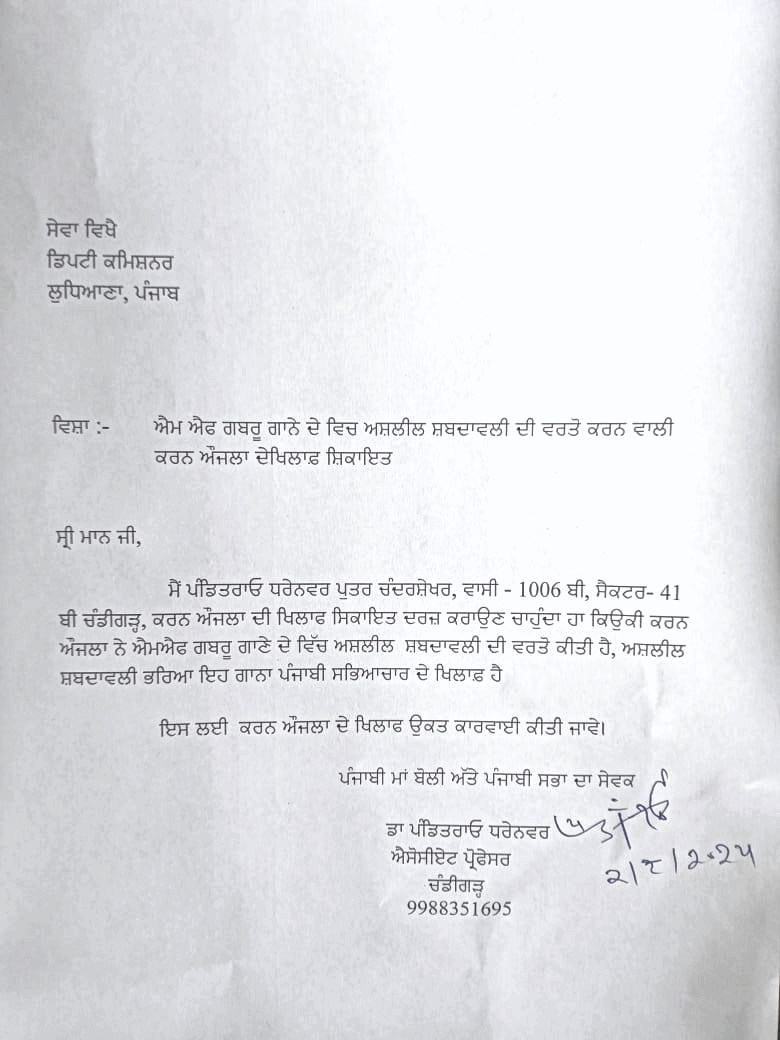 ਸੇਵਾ ਵਿਖੈ
ਡਿਪਟੀ ਕਮਿਸ਼ਨਰ
ਲੁਧਿਆਣਾ, ਪੰਜਾਬ
ਵਿਸ਼ਾ :- ਐਮ ਐਫ ਗਬਰੂ ਗਾਨੇ ਦੇ ਵਿਚ ਅਸ਼ਲੀਲ ਸ਼ਬਦਾਵਲੀ ਦੀ ਵਰਤੋ ਕਰਨ ਵਾਲੀ
ਕਰਨ ਔਜਲਾ ਦੇਖਿਲਾਫ਼ ਸ਼ਿਕਾਇਤ
ਸ੍ਰੀ ਮਾਨ ਜੀ,
ਮੈਂ ਪੰਡਿਤਰਾਓ ਧਰੇਨਵਰ ਪੁਤਰ ਚੰਦਰਸ਼ੇਖਰ, ਵਾਸੀ - 1006 ਬੀ, ਸੈਕਟਰ- 41
ਬੀ ਚੰਡੀਗੜ੍ਹ, ਕਰਨ ਔਜਲਾ ਦੀ ਖਿਲਾਫ ਸਿਕਾਇਤ ਦਰਜ਼ ਕਰਾਉਣ ਚਾਹੁੰਦਾ ਹਾ ਕਿਉਕੀ ਕਰਨ
ਔਜਲਾ ਨੇ ਐਮਐਫ ਗਬਰੂ ਗਾਣੇ ਦੇ ਵਿੱਚ ਅਸ਼ਲੀਲ ਸ਼ਬਦਾਵਲੀ ਦੀ ਵਰਤੋ ਕੀਤੀ ਹੈ, ਅਸ਼ਲੀਲ
ਸ਼ਬਦਾਵਲੀ ਭਰਿਆ ਇਹ ਗਾਨਾ ਪੰਜਾਬੀ ਸਭਿਆਚਾਰ ਦੇ ਖਿਲਾਫ਼ ਹੈ
ਇਸ ਲਈ ਕਰਨ ਔਜਲਾ ਦੇ ਖਿਲਾਫ ਉਕਤ ਕਾਰਵਾਈ ਕੀਤੀ ਜਾਵੇ।
ਪੰਜਾਬੀ ਮਾਂ ਬੋਲੀ ਅੱਤੇ ਪੰਜਾਬੀ ਸਭਾ ਦਾ ਸੇਵਕ
ਡਾ ਪੰਡਿਤਰਾਓ ਧਰੇਨਵਰ
ਐਸੋਸੀਏਟ ਪ੍ਰੋਫੇਸਰ
੨/੮/੨੦੨੫
ਚੰਡੀਗੜ੍ਹ
9988351695